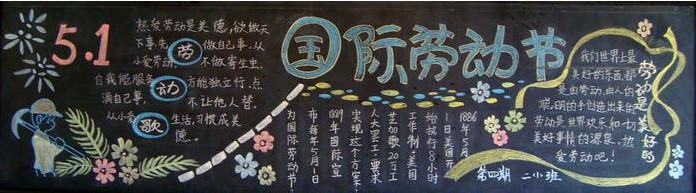 5.1
热爱劳动是美德,欲做天
下事先 劳 做自己事:从
小爱劳动, 不做寄生虫,
自我能服务 动 方能独立行.点
滴自己事, 不让他人替.
从小爱 歌 生活,习惯成美
德.
国际劳动节
1886年5月
1日美国芝
给执行8小时
工作制,美国
芝加哥20万工
人大罢工,要求
实现这个方案.
1889年国际宣
布每年5月1日
为国际劳动节!
劳动是美好的
我们世界上最
美好的东西,都
是由劳动,由人的
聪明的手创造出来的
劳动是世界欢乐和一切
美好事情的源泉,热
爱劳动吧!
第四期 二小班